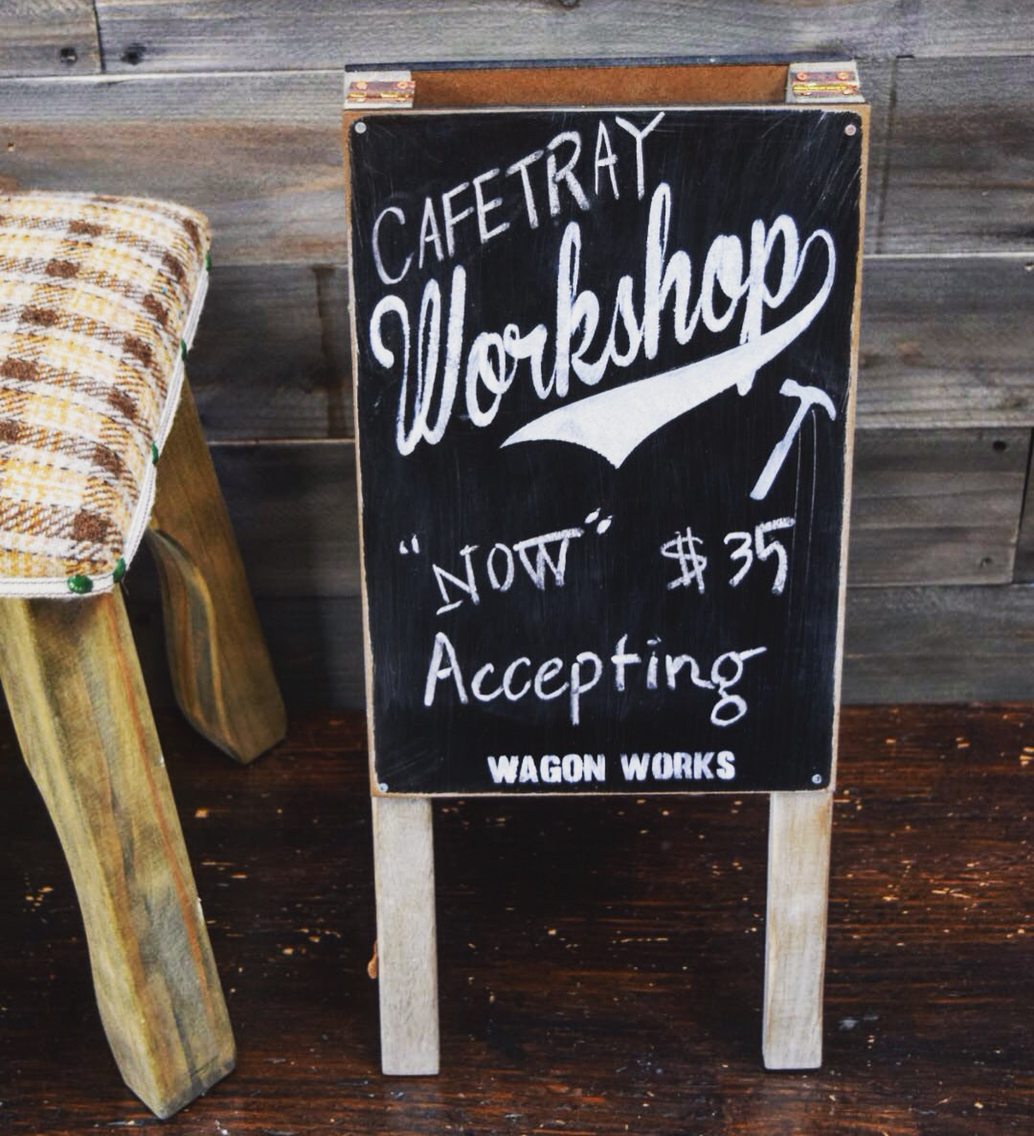 CAFETRAY
Workshop
"NOW" $35
Accepting
WAGON WORKS